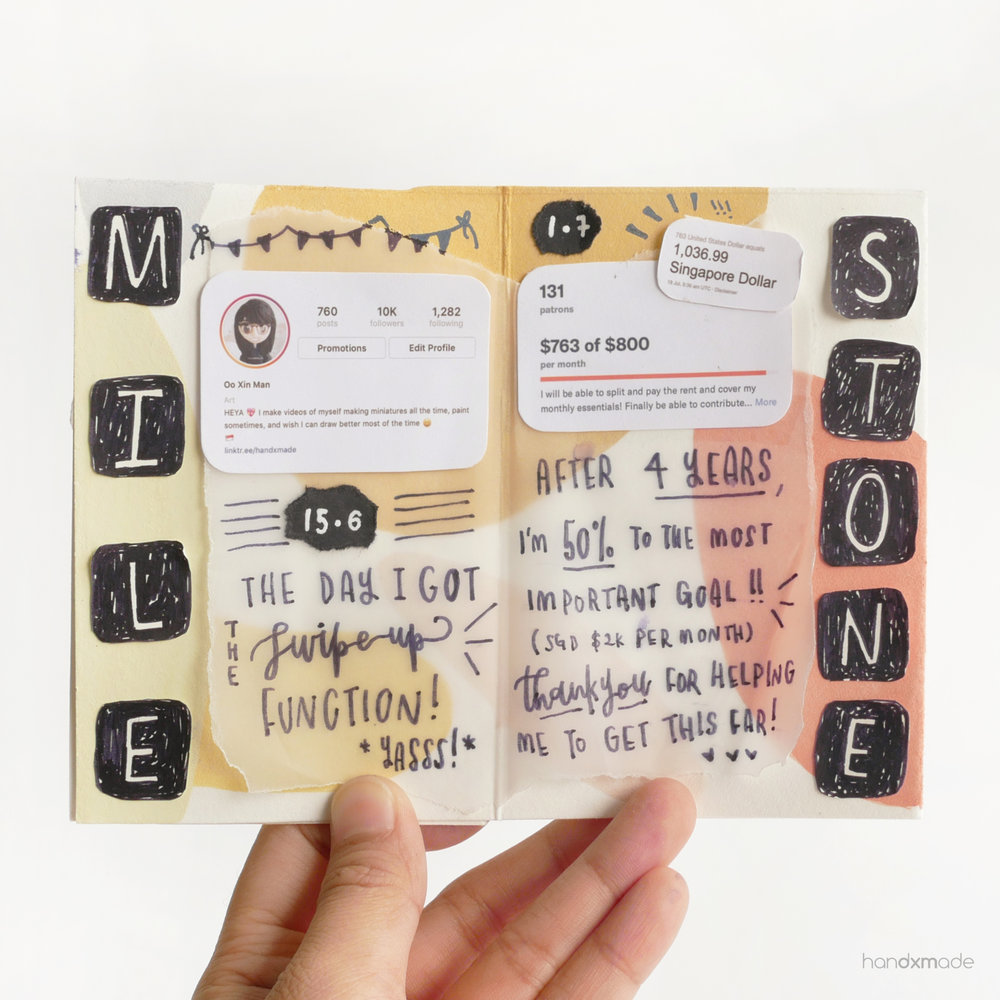 MILE
760 10K 1,282
posts followers following
Promotions Edit Profile
Oo Xin Man
Art
HEYA 💖 I make videos of myself making miniatures all the time, paint
sometimes, and wish I can draw better most of the time 😄
🇸🇬
linktr.ee/handxmade
15.6
THE DAY I GOT
THE swipe-up
FUNCTION!
*YASSS!*
1.7
!!!
763 United States Dollar equals
1,036.99
Singapore Dollar
131
patrons
$763 of $800
per month
I will be able to split and pay the rent and cover my
monthly essentials! Finally be able to contribute... More
AFTER 4 YEARS,
I'M 50% TO THE MOST
IMPORTANT GOAL!!
(SGD $2K PER MONTH)
thank you FOR HELPING
ME TO GET THIS FAR!
STONE
handxmade